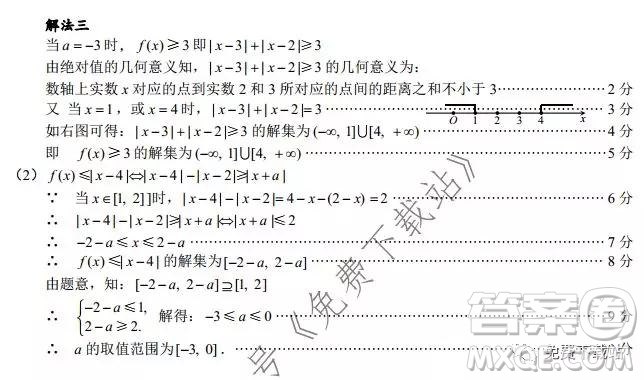 解法三
当 a = −3 时，f(x) ⩾ 3 即 | x−3 | + | x−2 | ⩾ 3
由绝对值的几何意义知，| x−3 | + | x−2 | ⩾ 3 的几何意义为：
数轴上实数 x 对应的点到实数 2 和 3 所对应的点间的距离之和不小于 3 ……………… 2 分
又 当 x = 1，或 x = 4 时，| x−3 | + | x−2 | = 3 ……………… 3 分
O 1 2 3 4 x
如右图可得：| x−3 | + | x−2 | ⩾ 3 的解集为 (−∞, 1]⋃[4, +∞) ……………… 4 分
即 f(x) ⩾ 3 的解集为 (−∞, 1]⋃[4, +∞) ……………… 5 分
（2） f(x) ⩽ | x−4 | ⇔ | x−4 | − | x−2 | ⩾ | x+a |
∵ 当 x∈[1, 2] ] 时，| x−4 | − | x−2 | = 4 − x − (2−x) = 2 ……………… 6 分
∴ | x−4 | − | x−2 | ⩾ | x+a | ⇔ | x+a | ⩽ 2
∴ −2−a ⩽ x ⩽ 2−a ……………… 7 分
∴ f(x) ⩽ | x−4 | 的解集为 [−2−a, 2−a] ……………… 8 分
由题意，知：[−2−a, 2−a] ⊇ [1, 2]
∴ {−2−a ⩽ 1, 2−a ⩾ 2. 解得：−3 ⩽ a ⩽ 0 ……………… 9 分
∴ a 的取值范围为 [−3, 0]． 分
号《免费下载站》
答案圈
MXQE.COM
免费下载站